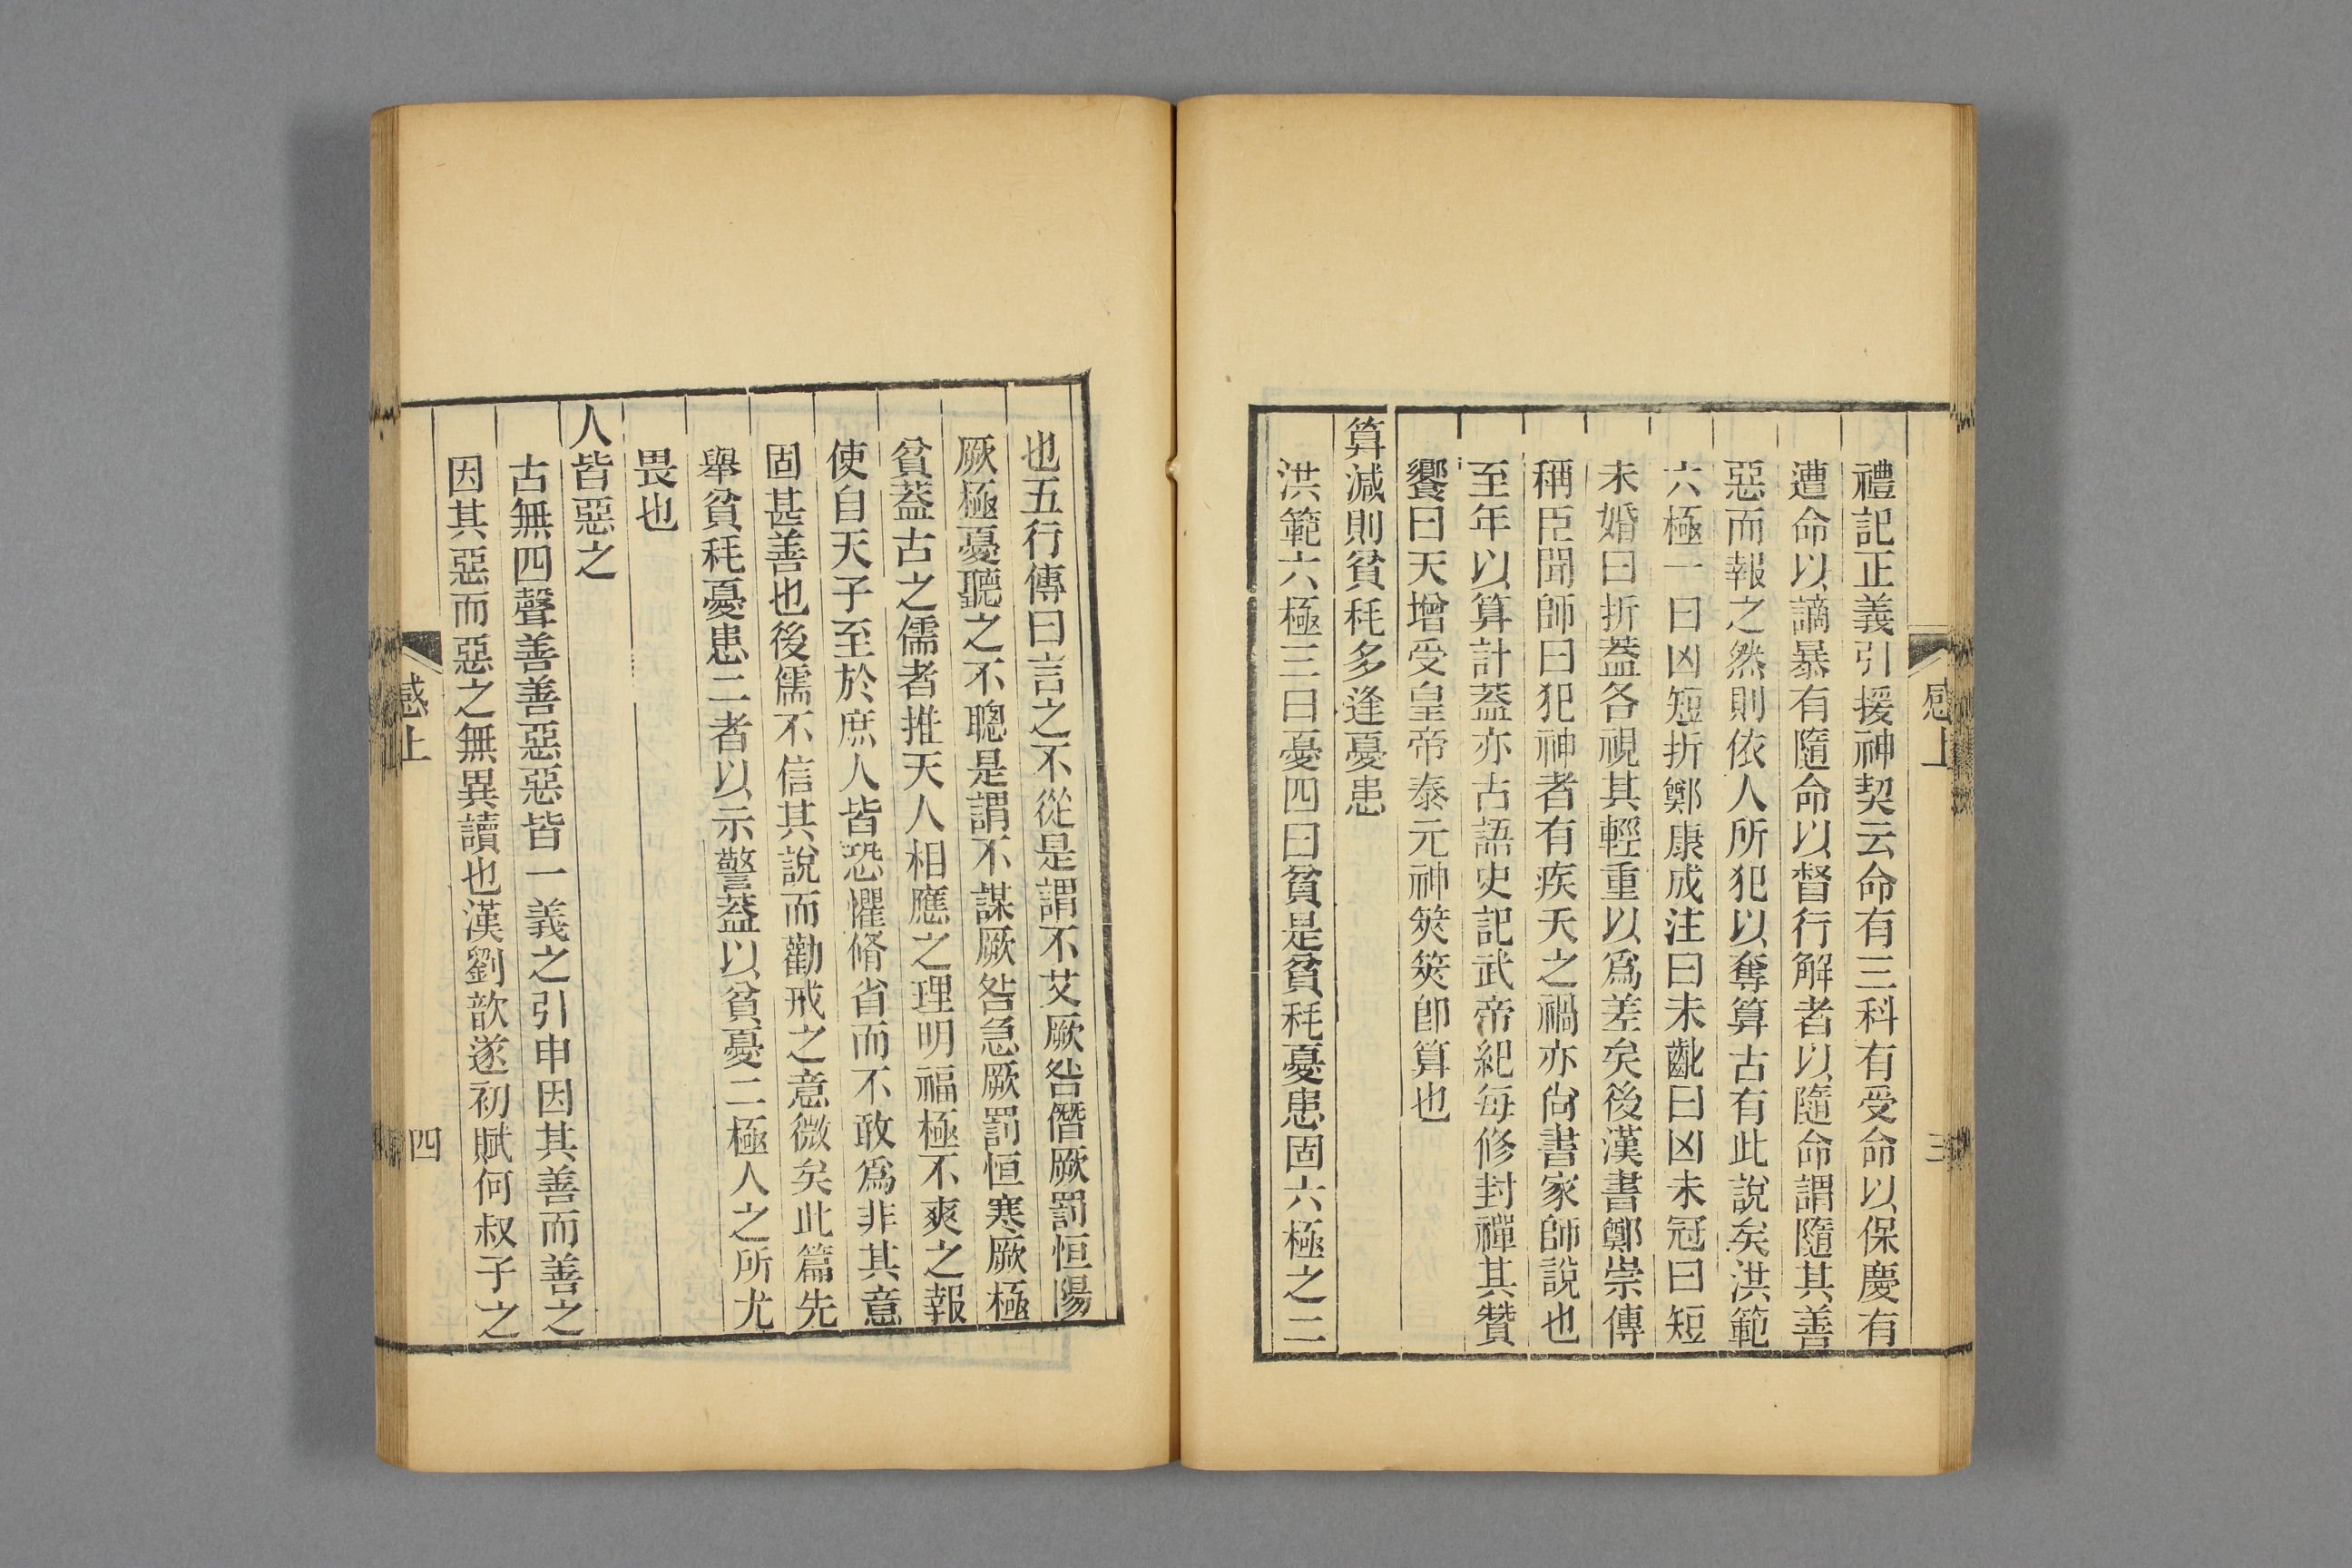 感上
三
禮記正義引援神契云命有三科有受命以保慶有
遭命以謫暴有隨命以督行解者以隨命謂隨其善
惡而報之然則依人所犯以奪算古有此說矣洪範
六極一曰凶短折鄭康成注曰未齔曰凶未冠曰短
未婚曰折蓋各視其輕重以爲差矣後漢書鄭崇傳
稱臣聞師曰犯神者有疾夭之禍亦尙書家師說也
至年以算計蓋亦古語史記武帝紀每修封禪其贊
饗曰天增受皇帝泰元神筴筴卽算也
算減則貧秏多逢憂患
洪範六極三曰憂四曰貧是貧秏憂患固六極之二
也五行傳曰言之不從是謂不艾厥咎僭厥罰恒陽
厥極憂聽之不聰是謂不謀厥咎急厥罰恒寒厥極
貧蓋古之儒者推天人相應之理明福極不爽之報
使自天子至於庶人皆恐懼脩省而不敢爲非其意
固甚善也後儒不信其說而勸戒之意微矣此篇先
舉貧秏憂患二者以示警蓋以貧憂二極人之所尤
畏也
人皆惡之
古無四聲善善惡惡皆一義之引申因其善而善之
因其惡而惡之無異讀也漢劉歆遂初賦何叔子之
感上
四